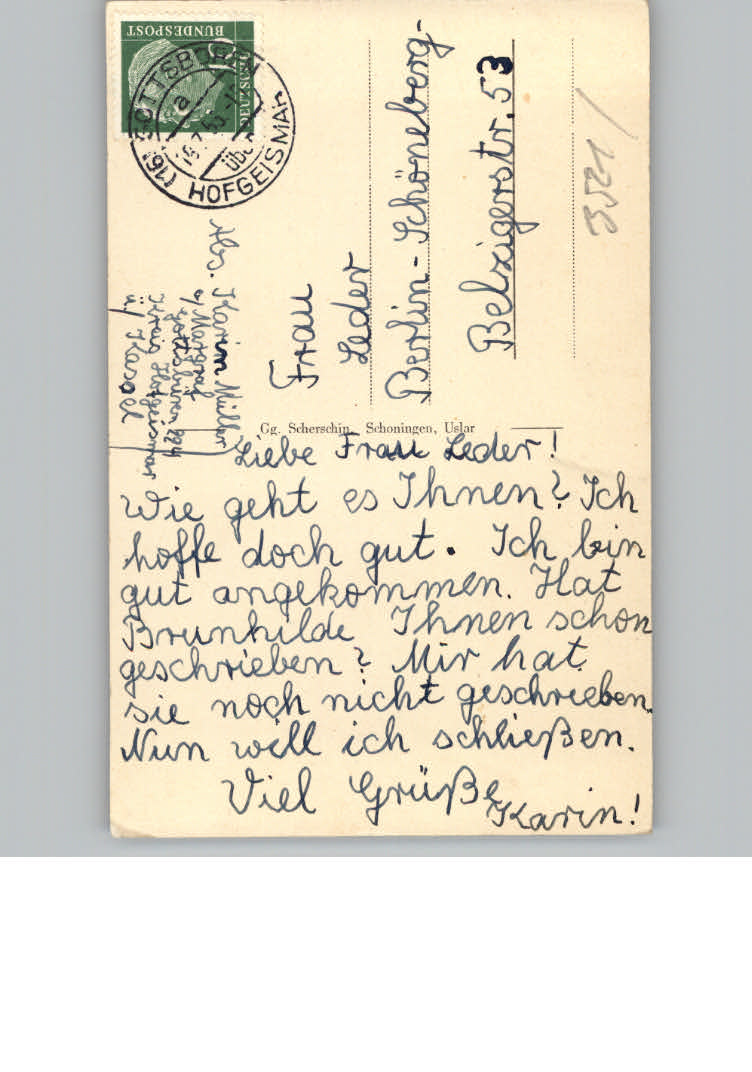 DEUTSCHE
BUNDESPOST
(16) GOTTSBÜREN
a
über
HOFGEISMAR
Abs. Karin Müller
b/ Margraf
Gottsbüren 224
Kreis Hofgeismar
ü/ Kassel
Frau
Leder
Berlin-Schöneberg-
Belzigerstr. 53
3521/
Gg. Scherschin, Schoningen, Uslar
Liebe Frau Leder!
Wie geht es Ihnen? Ich
hoffe doch gut. Ich bin
gut angekommen. Hat
Brunhilde Ihnen schon
geschrieben? Mir hat
sie noch nicht geschrieben.
Nun will ich schließen.
Viel Grüße
Karin!